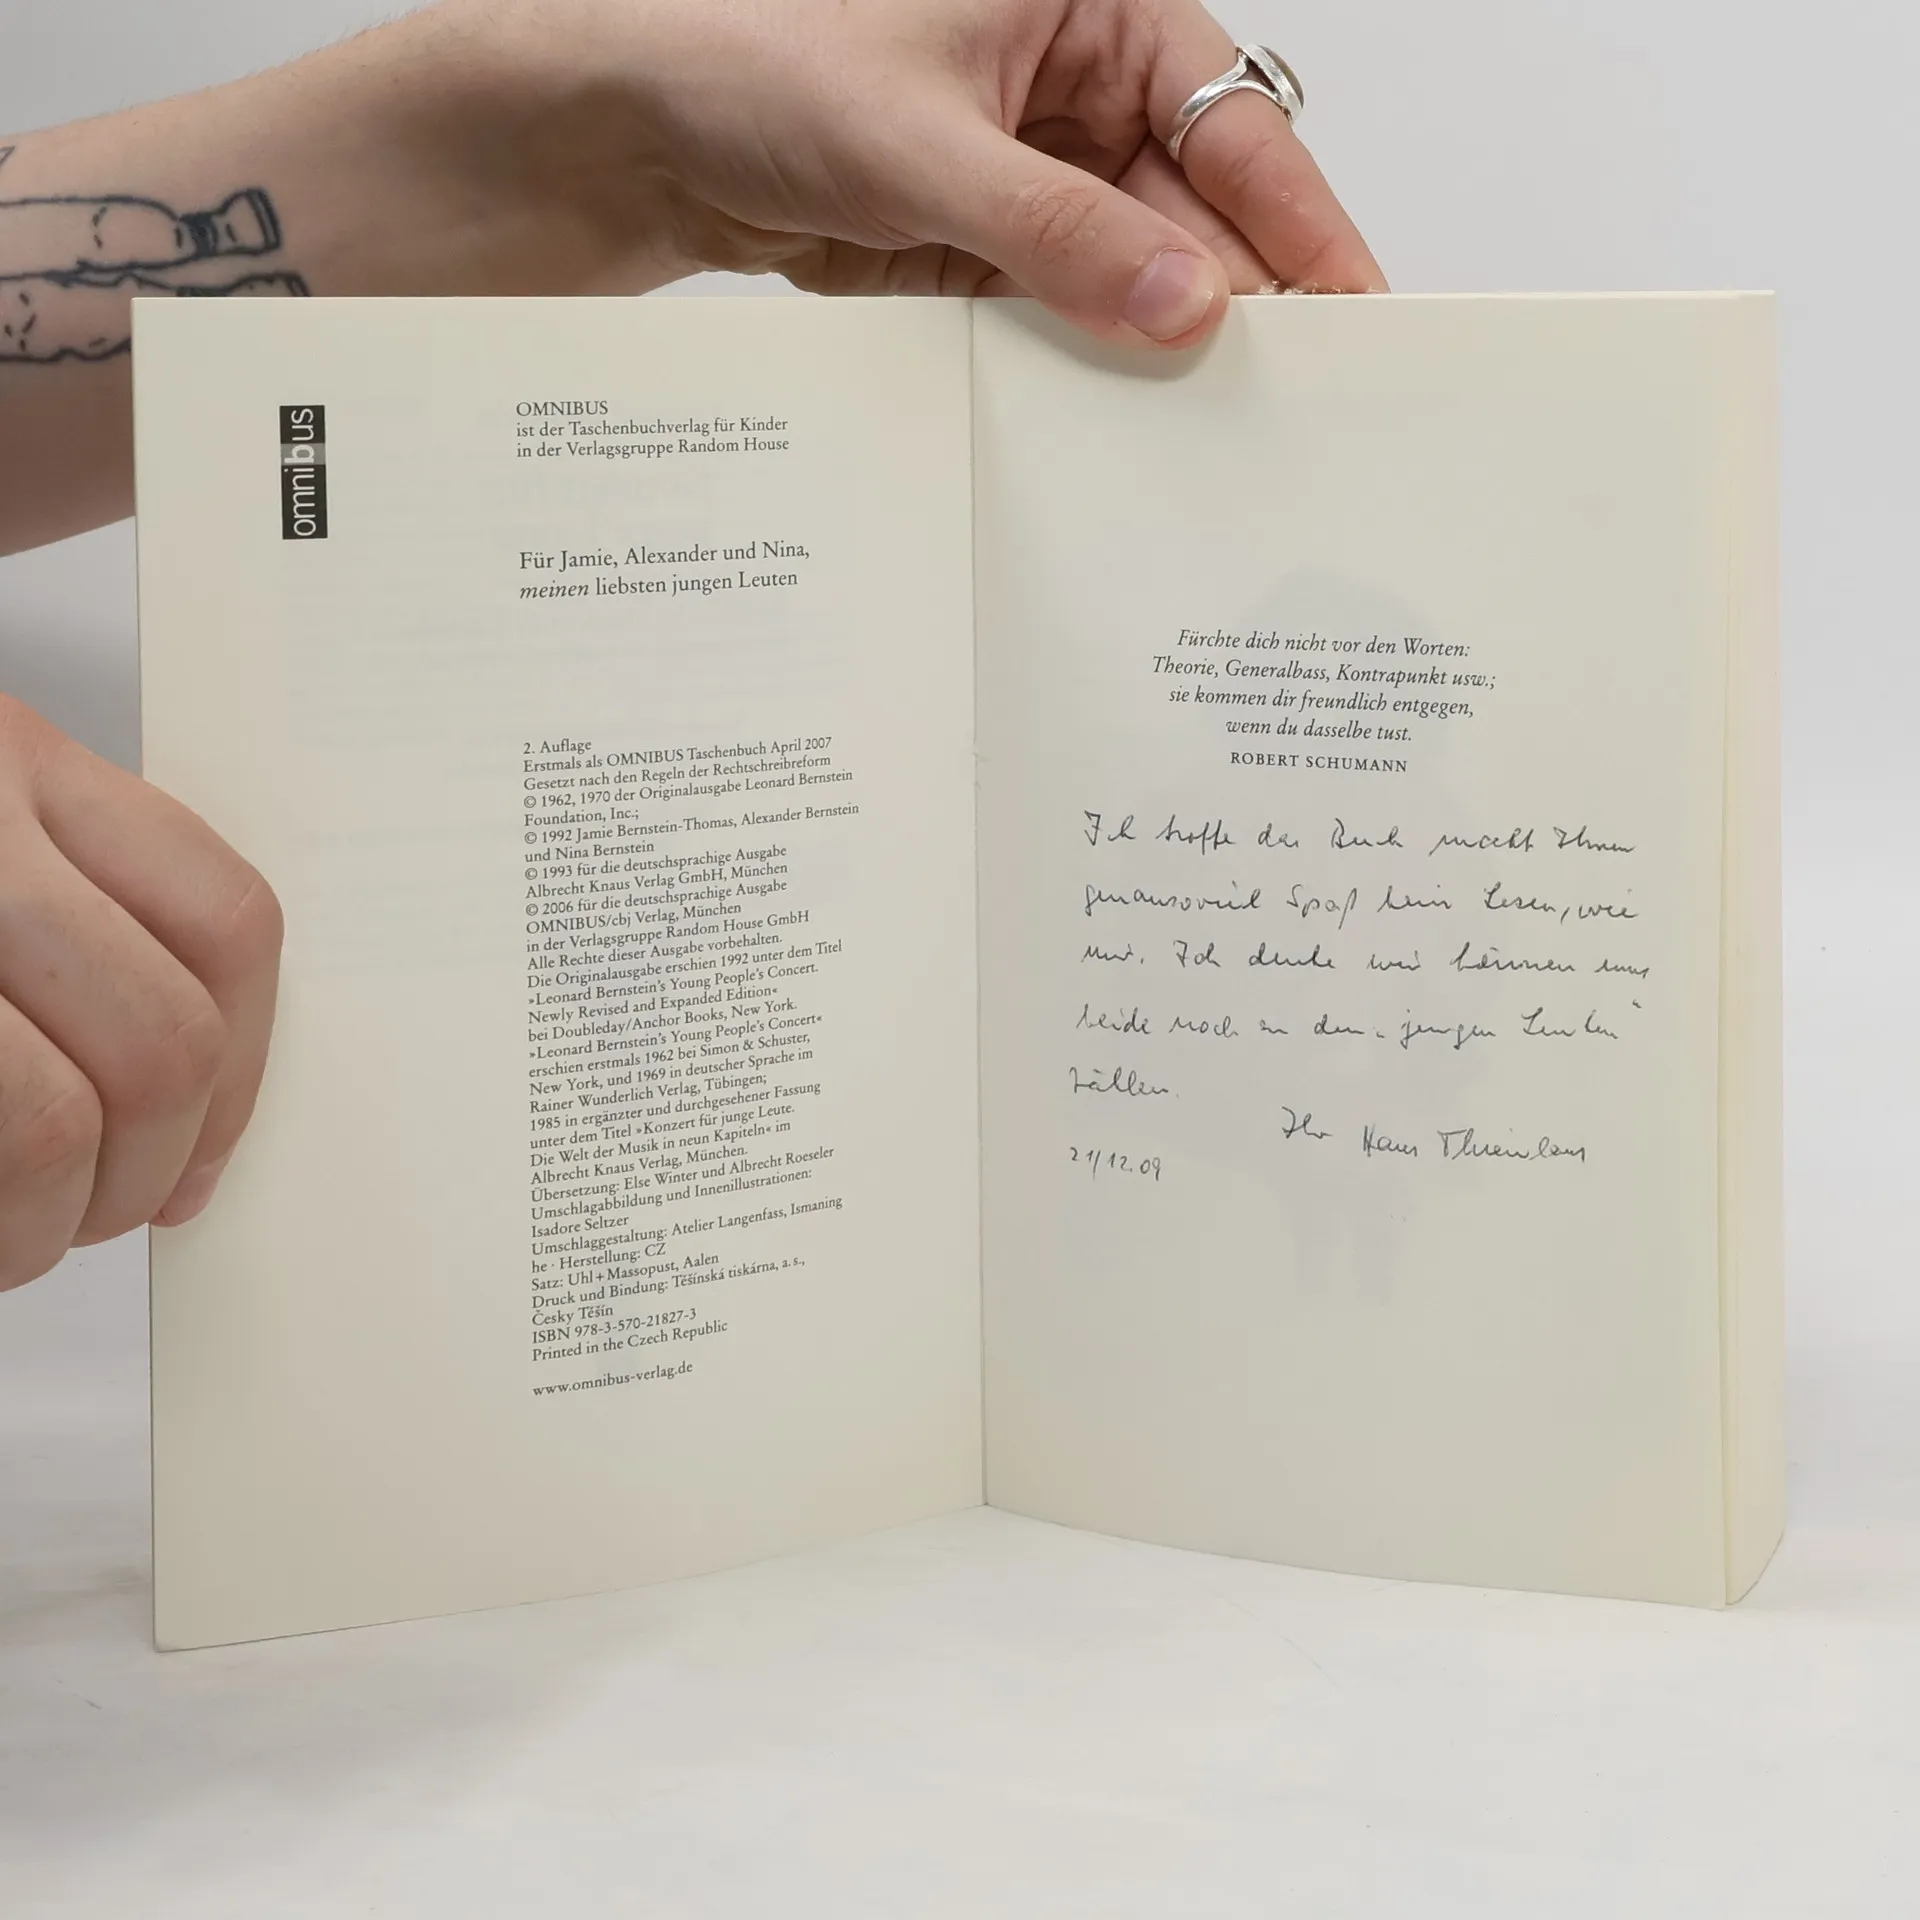 omnibus
OMNIBUS
ist der Taschenbuchverlag für Kinder
in der Verlagsgruppe Random House
Für Jamie, Alexander und Nina,
meinen liebsten jungen Leuten
2. Auflage
Erstmals als OMNIBUS Taschenbuch April 2007
Gesetzt nach den Regeln der Rechtschreibreform
© 1962, 1970 der Originalausgabe Leonard Bernstein
Foundation, Inc.;
© 1992 Jamie Bernstein-Thomas, Alexander Bernstein
und Nina Bernstein
© 1993 für die deutschsprachige Ausgabe
Albrecht Knaus Verlag GmbH, München
© 2006 für die deutschsprachige Ausgabe
OMNIBUS/cbj Verlag, München
in der Verlagsgruppe Random House GmbH
Alle Rechte dieser Ausgabe vorbehalten.
Die Originalausgabe erschien 1992 unter dem Titel
»Leonard Bernstein's Young People's Concert.
Newly Revised and Expanded Edition«
bei Doubleday/Anchor Books, New York.
»Leonard Bernstein's Young People's Concert«
erschien erstmals 1962 bei Simon & Schuster,
New York, und 1969 in deutscher Sprache im
Rainer Wunderlich Verlag, Tübingen;
1985 in ergänzter und durchgesehener Fassung
unter dem Titel »Konzert für junge Leute.
Die Welt der Musik in neun Kapiteln« im
Albrecht Knaus Verlag, München.
Übersetzung: Else Winter und Albrecht Roeseler
Umschlagabbildung und Innenillustrationen:
Isadore Seltzer
Umschlaggestaltung: Atelier Langenfass, Ismaning
he · Herstellung: CZ
Satz: Uhl + Massopust, Aalen
Druck und Bindung: Těšínská tiskárna, a. s.,
Česky Těšín
ISBN 978-3-570-21827-3
Printed in the Czech Republic
www.omnibus-verlag.de
Fürchte dich nicht vor den Worten:
Theorie, Generalbass, Kontrapunkt usw.;
sie kommen dir freundlich entgegen,
wenn du dasselbe tust.
ROBERT SCHUMANN
Ich hoffe das Buch macht Ihnen
genausoviel Spaß beim Lesen, wie
mir. Ich denke wir können uns
beide noch zu den „jungen Leuten"
zählen.
Ihr Hans
21/12.09